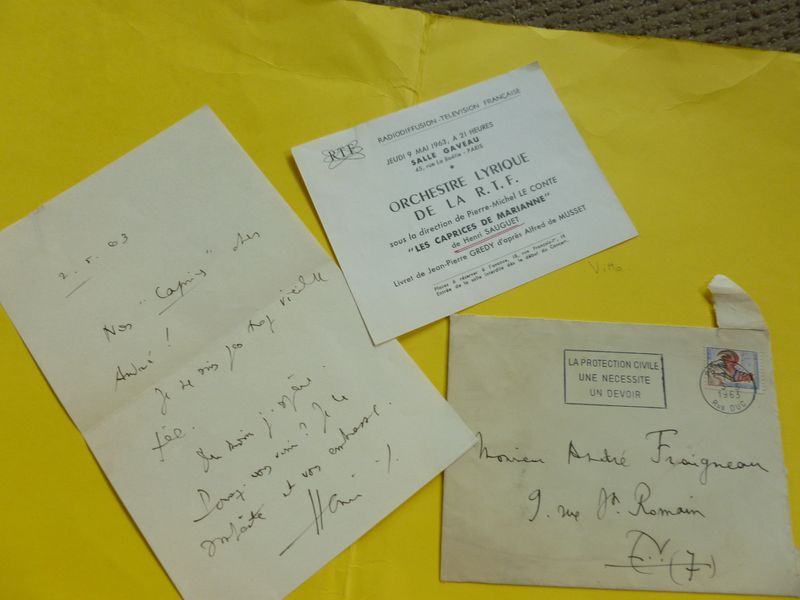 2.5.63
Nos "Caprices" cher
André !
Je ne suis pas trop vieille
fée.
Du moins j'espère.
Pouvez-vous venir ? Je le
souhaite et vous embrasse.
Henri
RTF
RADIODIFFUSION-TÉLÉVISION FRANÇAISE
JEUDI 9 MAI 1963, A 21 HEURES
SALLE GAVEAU
45, rue La Boétie - PARIS
ORCHESTRE LYRIQUE
DE LA R.T.F.
sous la direction de Pierre-Michel LE CONTE
"LES CAPRICES DE MARIANNE"
de Henri SAUGUET
Livret de Jean-Pierre GREDY d'après Alfred de MUSSET
Places à réserver à l'avance, 15, rue François-1er
Entrée de la salle interdite dès le début du Concert.
LA PROTECTION CIVILE
UNE NECESSITE
UN DEVOIR
1963
RUE DUC
Monsieur André Fraigneau
9. rue St. Romain
E.V. (7)